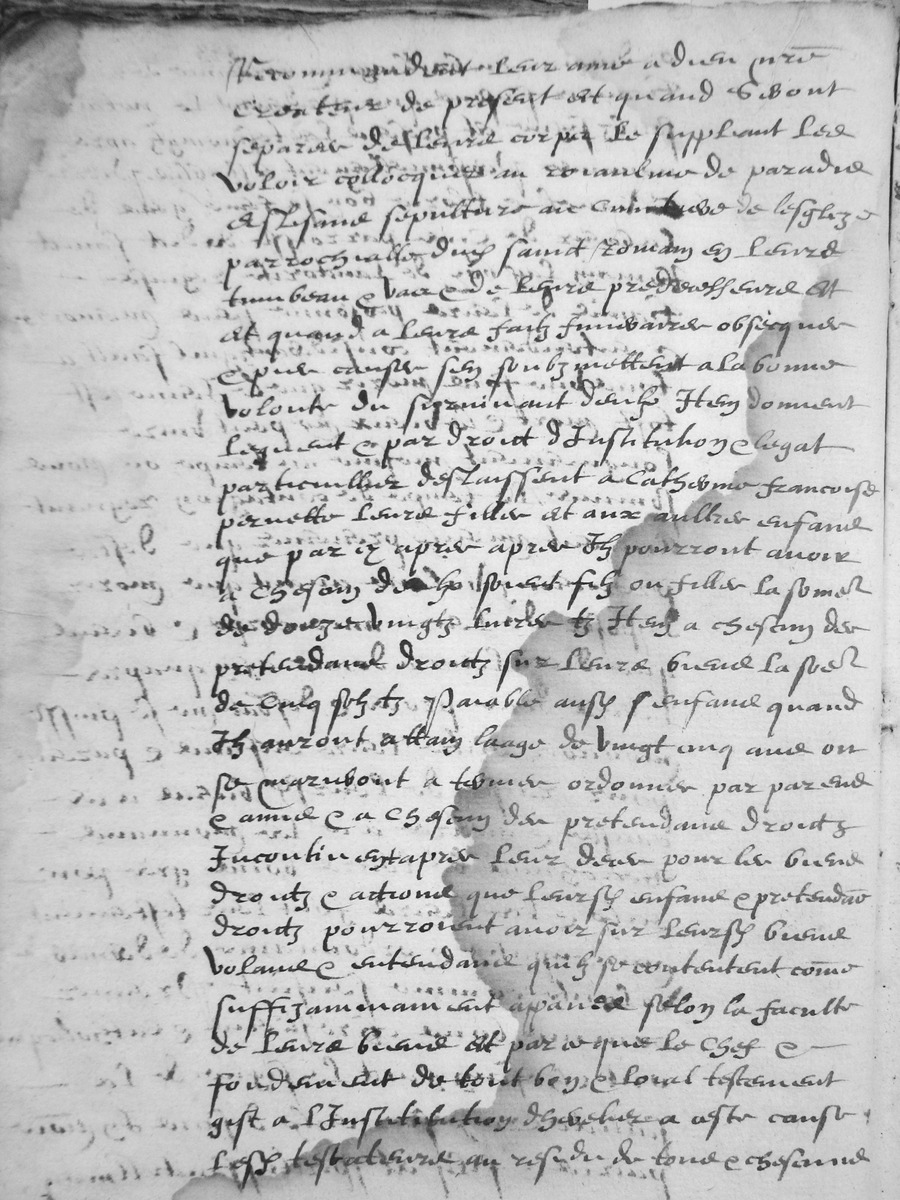 Recommandent leur ame a dieu nre
createur de present et quand seront
separes de leurs corps le suppliant les
voloir collocquer au roiaulme de paradis
eslisans sepulture au de lesglize
parrochialle dud sainct romain en leurs
tumbeau & de leurs predecesseurs et
et quand a leurs faitz funeraires obseques
& pies causes sen soubzmettent a la bonne
volonte du survivant deulx Item donnent
leguent & par droict d Institution & legat
particullier deslaissent a Catherine francoise
pernette leurs filles et aux aultres enfans
que par cy apres apres Ilz pourront avoir
a chescun deulx soient filz ou filles la some
de douze vingtz livres tz Item a chescun des
pretendans droictz sur leurs biens la some
de cinq solz tz Paiable ausd enfans quand
Ilz auront attain laage de vingt cinq ans ou
se mariront a termes ordonnes par parens
& amis & a chescun des pretendans droictz
Incontinent apres leur deces pour les biens
droictz & actions que leursd enfans & pretendas
droictz pourroient avoir sur leursd biens
volans & entendans quilz se contentent come
suffizammament apanes selon la faculte
de leurs biens et parce que le chef &
fondement de tout bon & loial testement
gist a l Institution dheretiers a ceste cause
lesd testateurs au residu de tous & chescuns